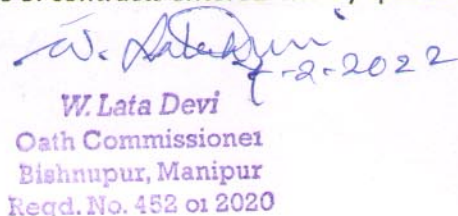 W. Lata Devi
7-2-2022
W. Lata Devi
Oath Commissioner
Bishnupur, Manipur
Regd. No. 452 of 2020